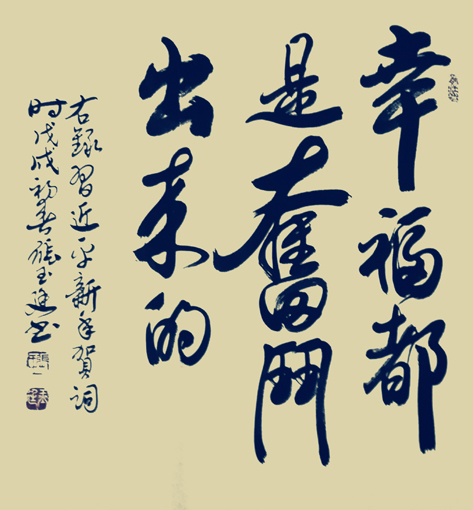 幸福都
是奮鬥
出来的
右錄習近平新年賀詞
时戊戌初春張玉進书